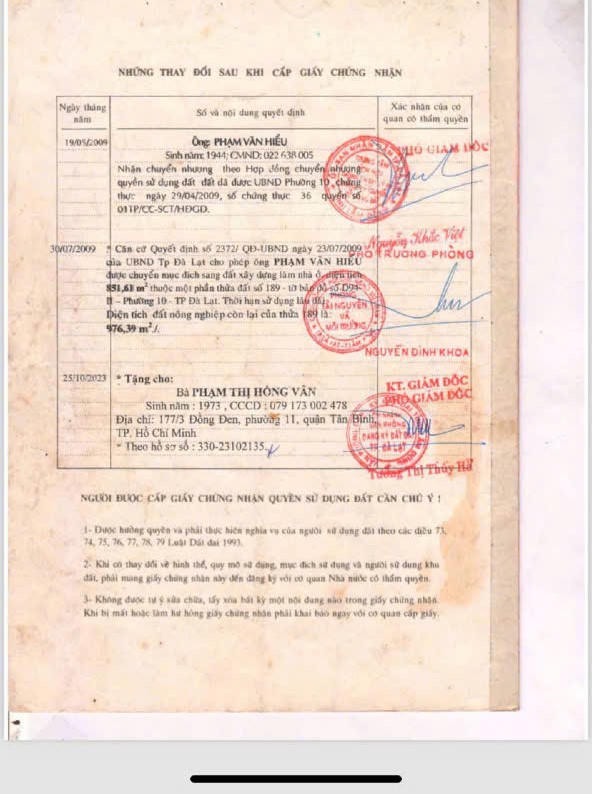 NHỮNG THAY ĐỔI SAU KHI CẤP GIẤY CHỨNG NHẬN
Ngày tháng năm
Số và nội dung quyết định
Xác nhận của cơ quan có thẩm quyền
19/05/2009
Ông: PHẠM VĂN HIẾU
Sinh năm: 1944; CMND: 022 638 005
Nhận chuyển nhượng theo Hợp đồng chuyển nhượng
quyền sử dụng đất đã được UBND Phường 10 chứng
thực ngày 29/04/2009, số chứng thực 36 quyển số
01TP/CC-SCT/HĐGD.
PHÓ GIÁM ĐỐC
Nguyễn Khắc Việt
30/07/2009
* Căn cứ Quyết định số 2372/ QĐ-UBND ngày 23/07/2009
của UBND Tp Đà Lạt cho phép ông PHẠM VĂN HIẾU
được chuyển mục đích sang đất xây dựng làm nhà ở, diện tích
851,61 m² thuộc một phần thửa đất số 189 - tờ bản đồ số D94-
II – Phường 10 - TP Đà Lạt. Thời hạn sử dụng lâu dài.
Diện tích đất nông nghiệp còn lại của thửa 189 là:
976,39 m²./.
PHÓ TRƯỞNG PHÒNG
TÀI NGUYÊN
VÀ
MÔI TRƯỜNG
NGUYỄN ĐÌNH KHOA
25/10/2023
* Tặng cho:
Bà PHẠM THỊ HỒNG VÂN
Sinh năm : 1973 , CCCD : 079 173 002 478
Địa chỉ: 177/3 Đồng Đen, phường 11, quận Tân Bình,
TP. Hồ Chí Minh
* Theo hồ sơ số : 330-23102135.
KT. GIÁM ĐỐC
PHÓ GIÁM ĐỐC
VĂN PHÒNG
ĐĂNG KÝ ĐẤT ĐAI
TP ĐÀ LẠT
Tường Thị Thúy Hà
NGƯỜI ĐƯỢC CẤP GIẤY CHỨNG NHẬN QUYỀN SỬ DỤNG ĐẤT CẦN CHÚ Ý !
1- Được hưởng quyền và phải thực hiện nghĩa vụ của người sử dụng đất theo các điều 73,
74, 75, 76, 77, 78, 79 Luật Đất đai 1993.
2- Khi có thay đổi về hình thể, quy mô sử dụng, mục đích sử dụng và người sử dụng khu
đất, phải mang giấy chứng nhận này đến đăng ký với cơ quan Nhà nước có thẩm quyền.
3- Không được tự ý sửa chữa, tẩy xóa bất kỳ một nội dung nào trong giấy chứng nhận.
Khi bị mất hoặc làm hư hỏng giấy chứng nhận phải khai báo ngay với cơ quan cấp giấy.